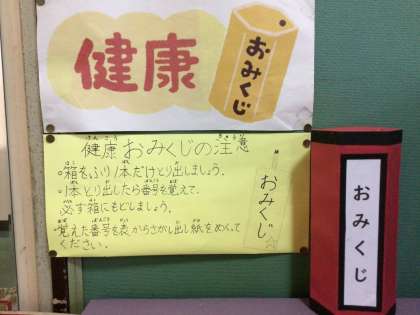 健康
おみくじ
健康おみくじの注意
○箱をふり1本だけとり出しましょう。
○1本とり出したら番号を覚えて、
必ず箱にもどしましょう。
覚えた番号を表からさがし出し紙をめくって
ください。
おみくじ
おみくじ